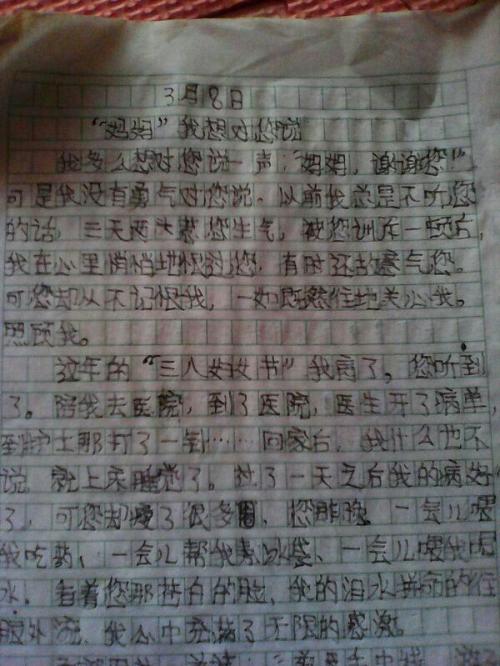 3月8日
“妈妈”我想对您说
我多么想对您说一声:“妈妈,谢谢您”
可是我没有勇气对您说。以前我总是不听您
的话,三天两头惹您生气,被您训斥一顿后,
我在心里悄悄地恨您,有时还故意气您。
可您却从不记恨我,一如既然往地关心我。
照顾我。
这年的“三八妇女节”我病了,您听到
了。陪我去医院,到了医院,医生开了病单,
到护士那打了一针……回家后,我什么也不
说 就上床睡觉了。过了一天之后我的病好
了,可您却瘦了很多,您那晚 一会儿喂
我吃药,一会儿帮我弄冰袋、一会儿喂我喝
水。看着您那苍白的脸,我的泪水拼命的往
眼外流,我心中充满了无限的感激。